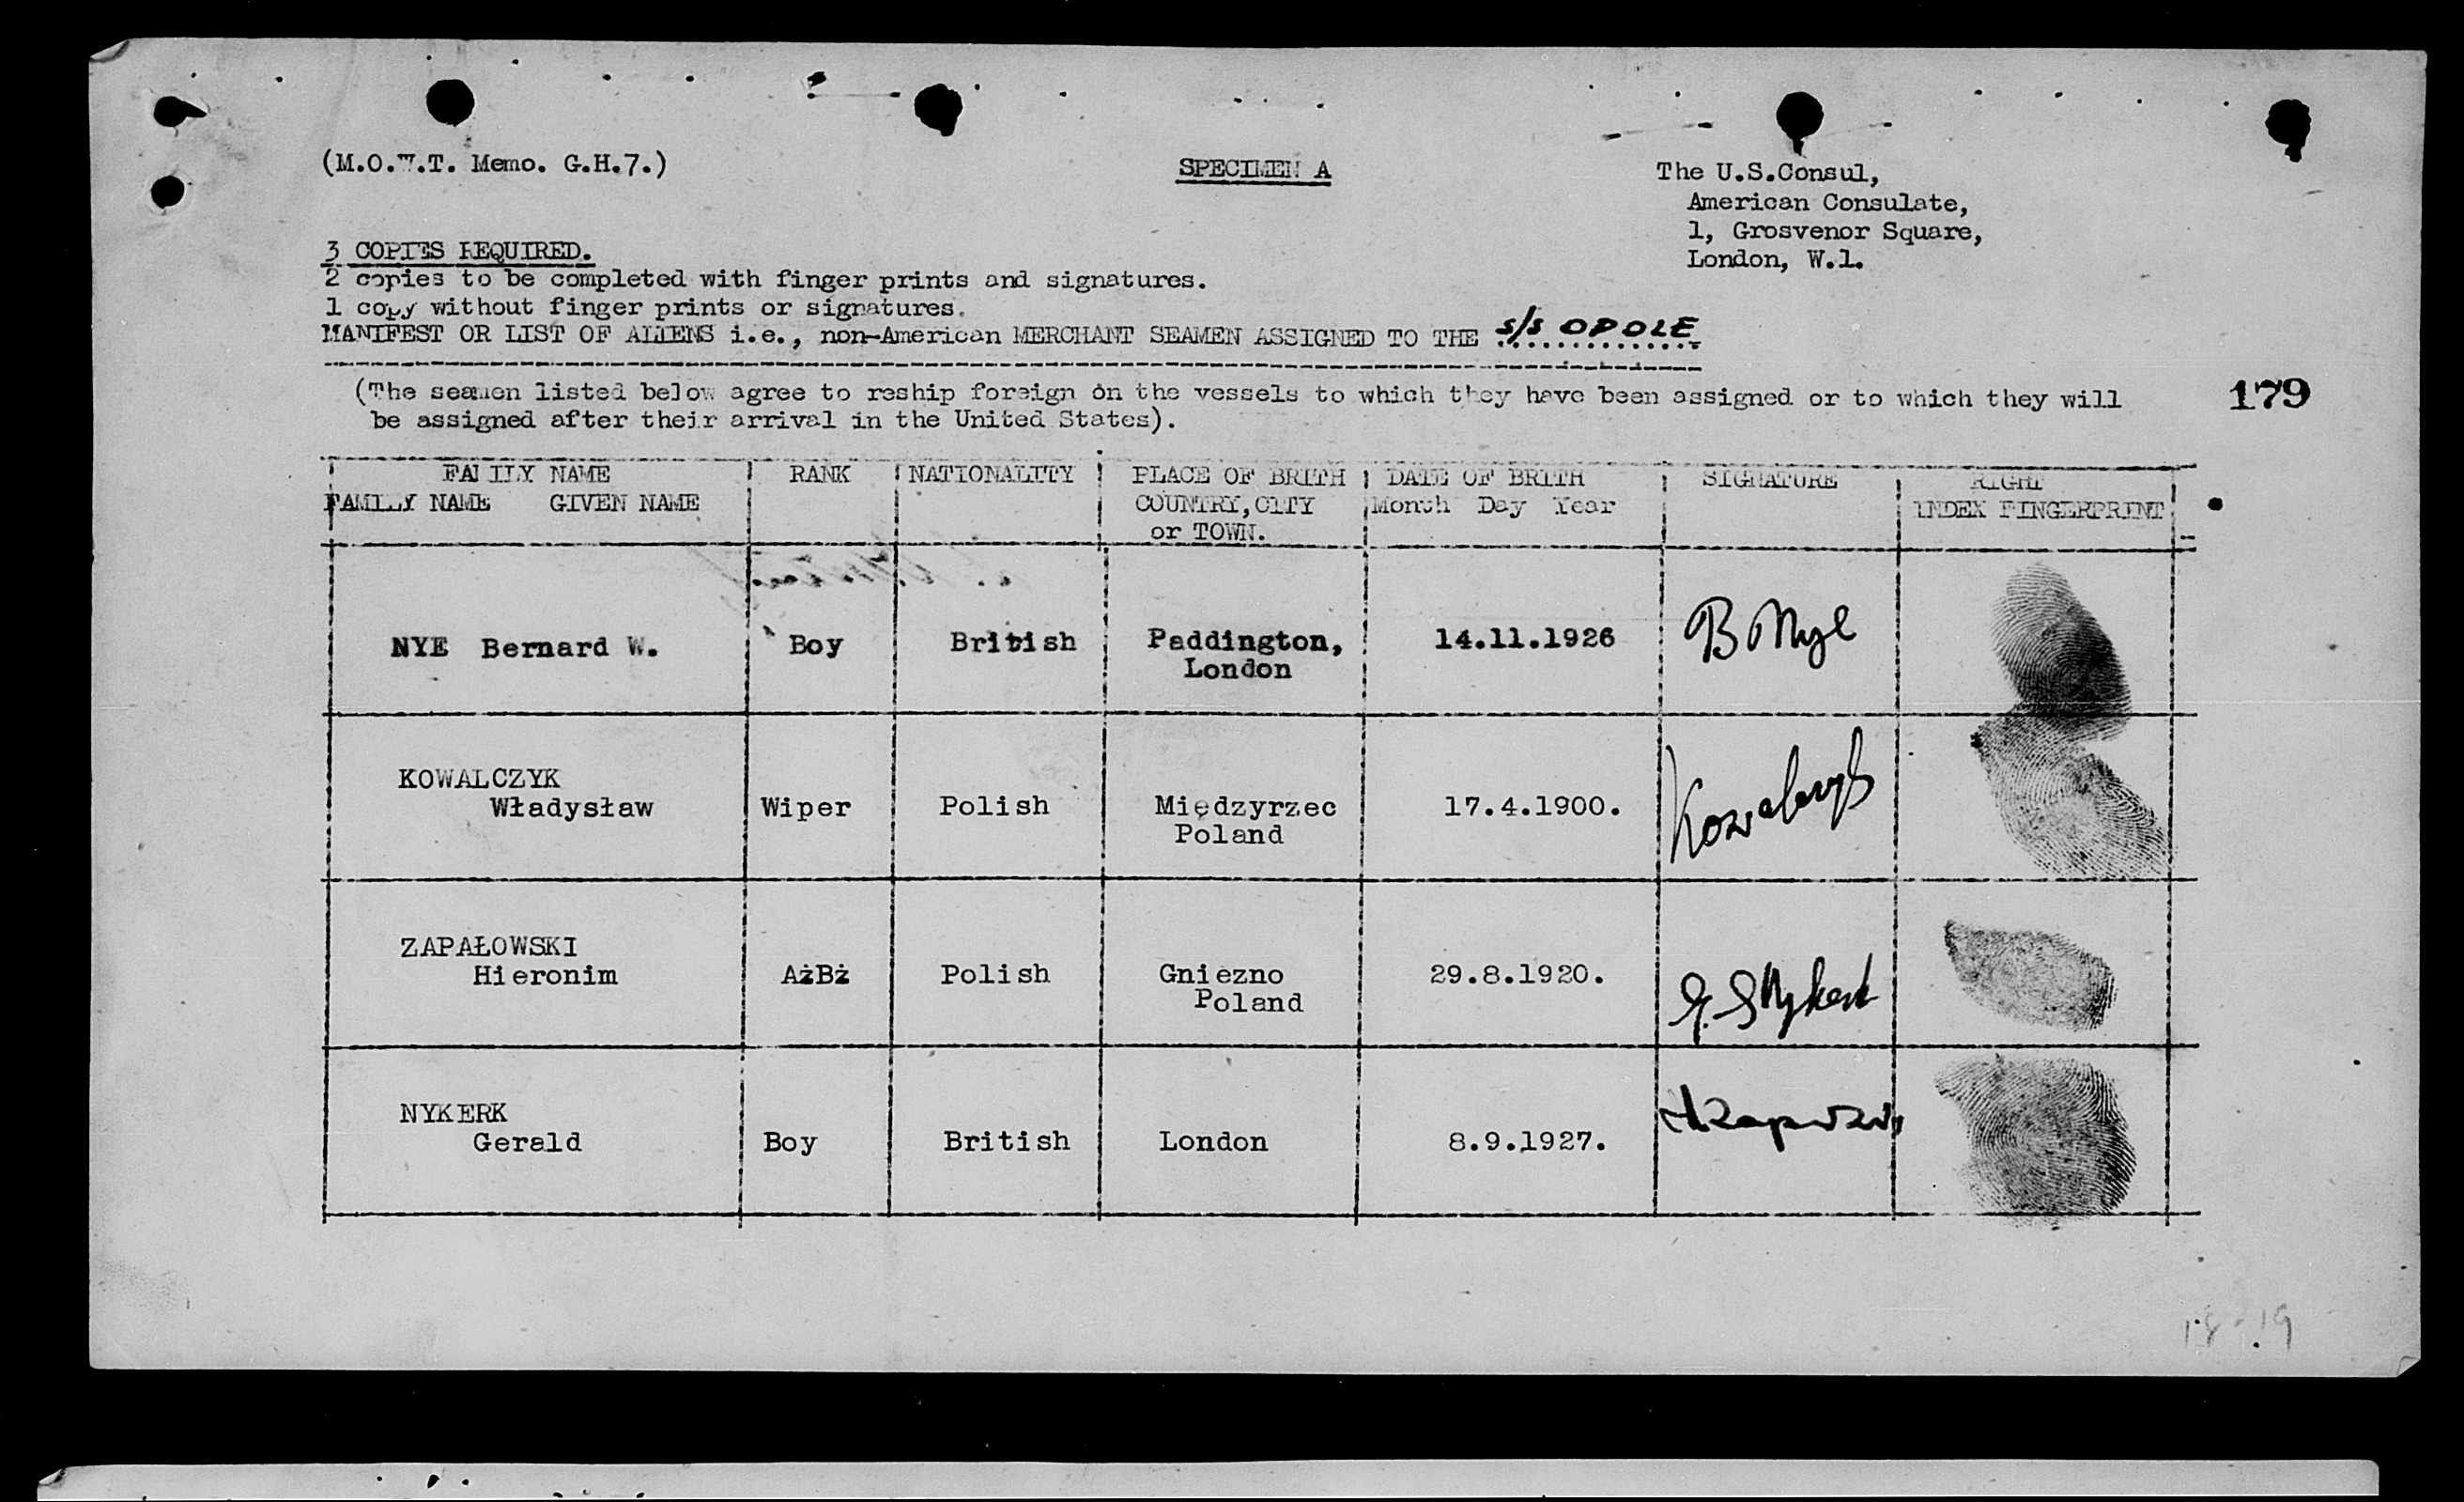 (M.O.W.T. Memo. G.H.7.)
SPECIMEN A
The U.S.Consul,
American Consulate,
1, Grosvenor Square,
London, W.1.
3 COPIES REQUIRED.
2 copies to be completed with finger prints and signatures.
1 copy without finger prints or signatures.
MANIFEST OR LIST OF ALIENS i.e., non-American MERCHANT SEAMEN ASSIGNED TO THE S/S OPOLE
(The seamen listed below agree to reship foreign on the vessels to which they have been assigned or to which they will
be assigned after their arrival in the United States).
179
FAMILY NAME RANK NATIONALITY PLACE OF BRITH DATE OF BRITH SIGNATURE RIGHT
FAMILY NAME GIVEN NAME COUNTRY,CITY Month Day Year INDEX FINGERPRINT
or TOWN.
NYE Bernard W. Boy British Paddington, 14.11.1926 B Nye
London
KOWALCZYK
Władysław Wiper Polish Międzyrzec 17.4.1900. Kowalczyk
Poland
ZAPAŁOWSKI
Hieronim AżBż Polish Gniezno 29.8.1920. G. S Nykerk
Poland
NYKERK
Gerald Boy British London 8.9.1927.
18-19